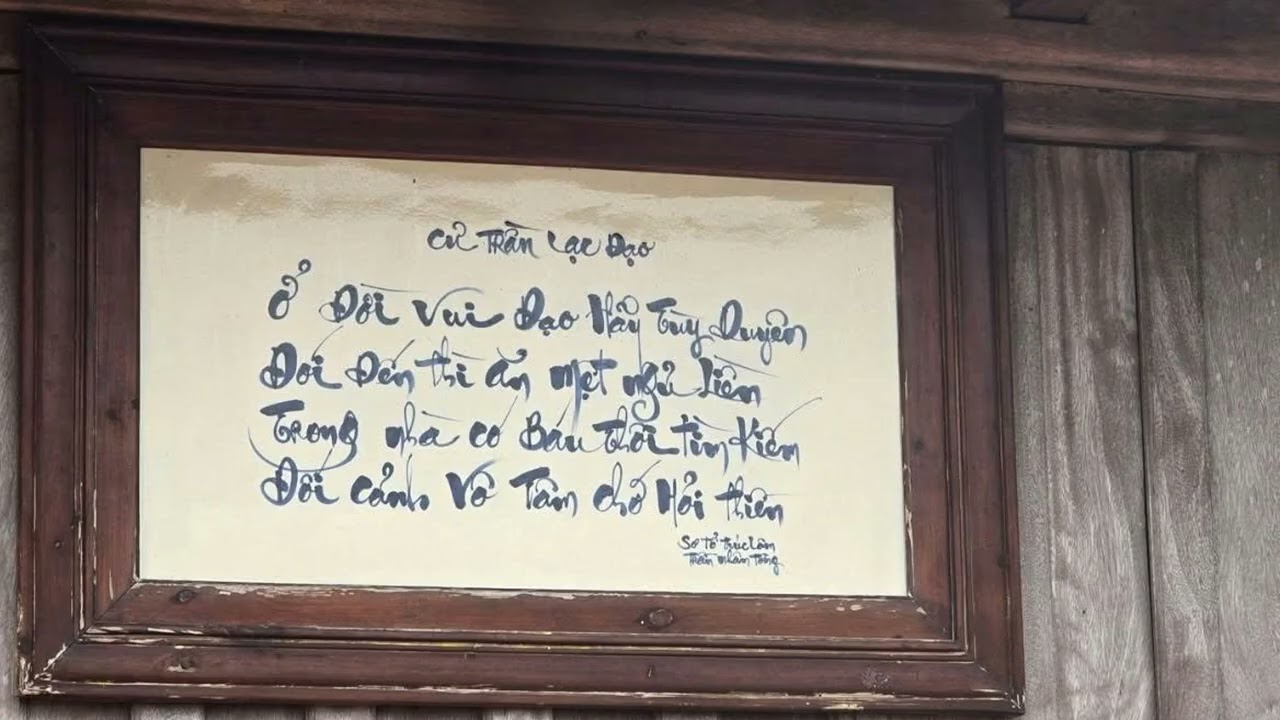 Cư Trần Lạc Đạo
Ở Đời Vui Đạo Hãy Tùy Duyên
Đói Đến thì ăn mệt ngủ liền
Trong nhà có Báu thôi tìm kiếm
Đối cảnh Vô Tâm chớ Hỏi thiền
Sơ tổ trúc Lâm
Trần nhân Tông